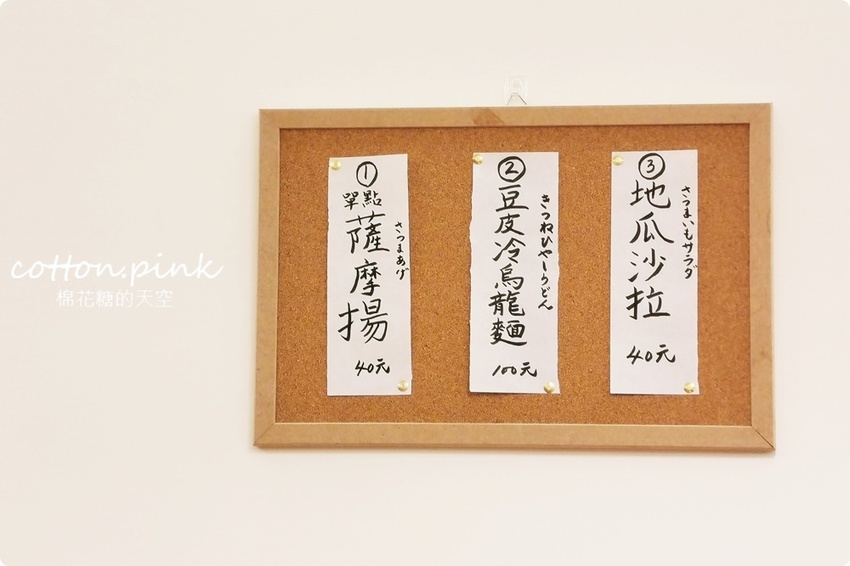 cotton.pink
棉花糖的天空
①
單點
薩摩揚
さつまあげ
40元
②
豆皮冷烏龍麵
きつねひやしうどん
100元
③
地瓜沙拉
さつまいもサラダ
40元